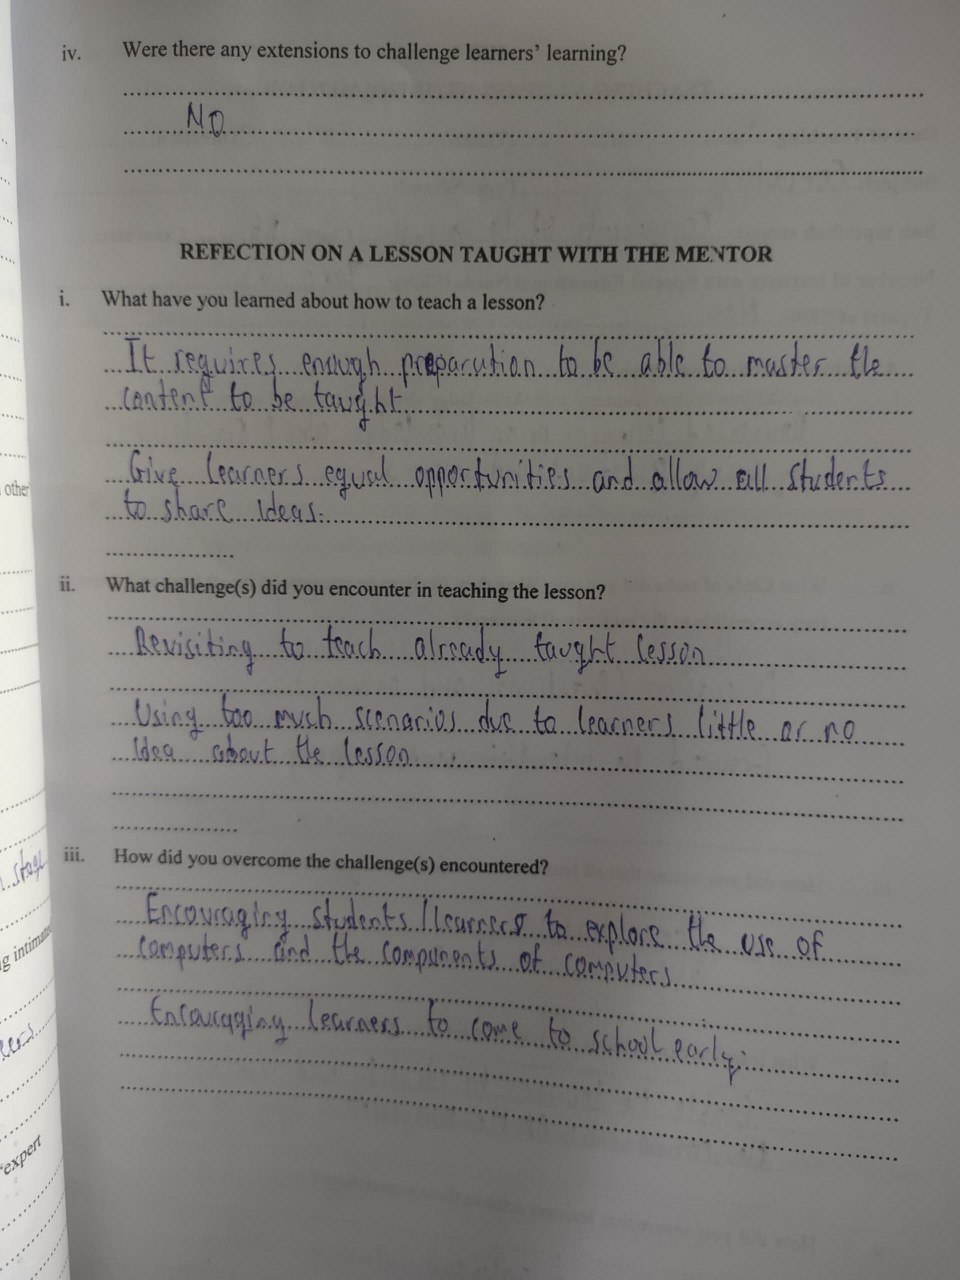 iv. Were there any extensions to challenge learners' learning?
NO
REFECTION ON A LESSON TAUGHT WITH THE MENTOR
i. What have you learned about how to teach a lesson?
It requires enough preparation to be able to master the
content to be taught
Give learners equal opportunities and allow all students
to share Ideas.
other
ii. What challenge(s) did you encounter in teaching the lesson?
Revisiting to teach already taught lesson
Using too much scenarios due to learners little or no
Idea about the lesson
iii. How did you overcome the challenge(s) encountered?
stage
Encouraging students/learners to explore the use of
computers and the components of computers
Encouraging learners to come to school early.
"expert